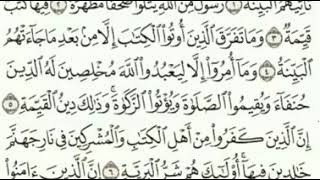 تَأْتِيَهُمُ ٱلْبَيِّنَةُ ١ رَسُولٌ مِّنَ ٱللَّهِ يَتْلُوا۟ صُحُفًا مُّطَهَّرَةً ٢ فِيهَا كُتُبٌ
قَيِّمَةٌ ٣ وَمَا تَفَرَّقَ ٱلَّذِينَ أُوتُوا۟ ٱلْكِتَٰبَ إِلَّا مِنۢ بَعْدِ مَا جَآءَتْهُمُ
ٱلْبَيِّنَةُ ٤ وَمَآ أُمِرُوٓا۟ إِلَّا لِيَعْبُدُوا۟ ٱللَّهَ مُخْلِصِينَ لَهُ ٱلدِّينَ
حُنَفَآءَ وَيُقِيمُوا۟ ٱلصَّلَوٰةَ وَيُؤْتُوا۟ ٱلزَّكَوٰةَ وَذَٰلِكَ دِينُ ٱلْقَيِّمَةِ ٥
إِنَّ ٱلَّذِينَ كَفَرُوا۟ مِنْ أَهْلِ ٱلْكِتَٰبِ وَٱلْمُشْرِكِينَ فِى نَارِ جَهَنَّمَ
خَٰلِدِينَ فِيهَآ أُو۟لَٰٓئِكَ هُمْ شَرُّ ٱلْبَرِيَّةِ ٦ إِنَّ ٱلَّذِينَ ءَامَنُوا۟